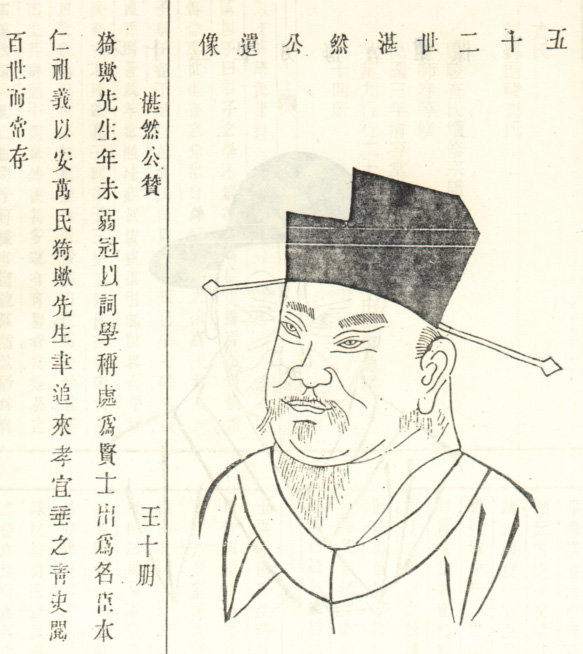 五十二世湛然公遺像
湛然公贊 王十朋
猗歟先生年未弱冠以詞學稱處爲賢士出爲名臣本
仁祖義以安萬民猗歟先生聿追來孝宜垂之靑史閱
百世而常存